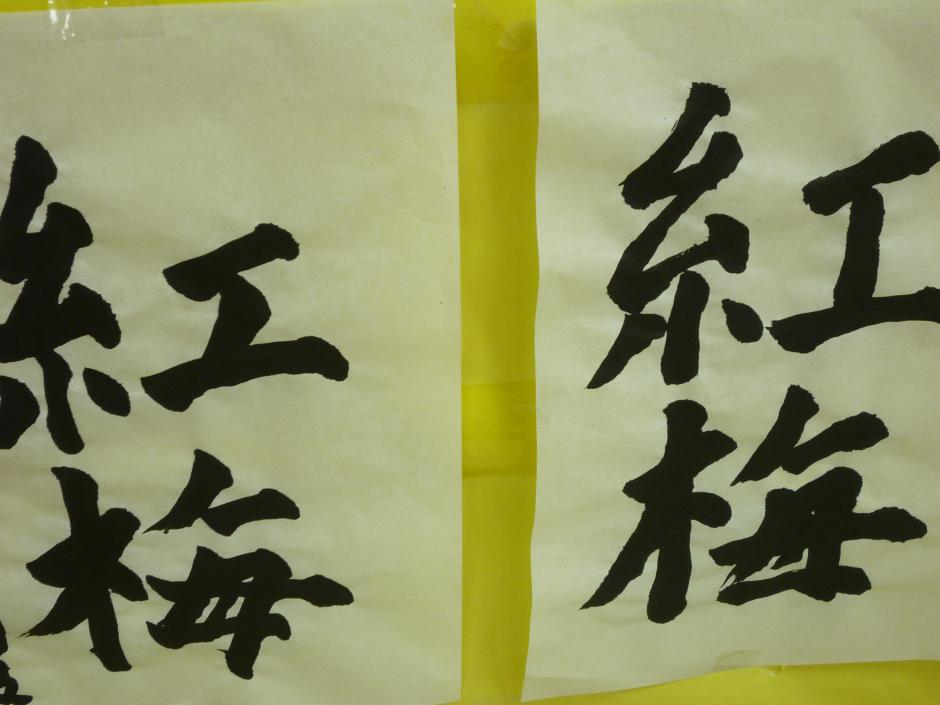 紅梅
紅梅